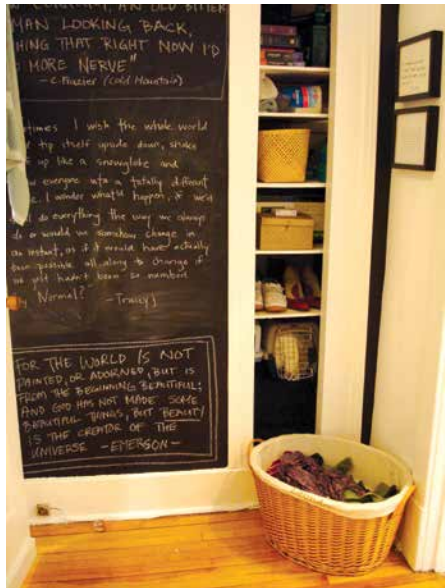 AN OLD BITTER
MAN LOOKING BACK,
THING THAT RIGHT NOW I'D
MORE NERVE"
- C. Frazier (Cold Mountain)
times I wish the whole world
tip itself upside down, shake
up like a snowglobe and
everyone into a totally different
I wonder what'd happen, if we'd
do everything the way we always
do or would we somehow change in
an instant, as if it would have actually
been possible all along to change if
we just hadn't been so numbed
Normal?" - Tracey J
FOR THE WORLD IS NOT
PAINTED, OR ADORNED, BUT IS
FROM THE BEGINNING BEAUTIFUL;
AND GOD HAS NOT MADE SOME
BEAUTIFUL THINGS, BUT BEAUTY
IS THE CREATOR OF THE
UNIVERSE - EMERSON -